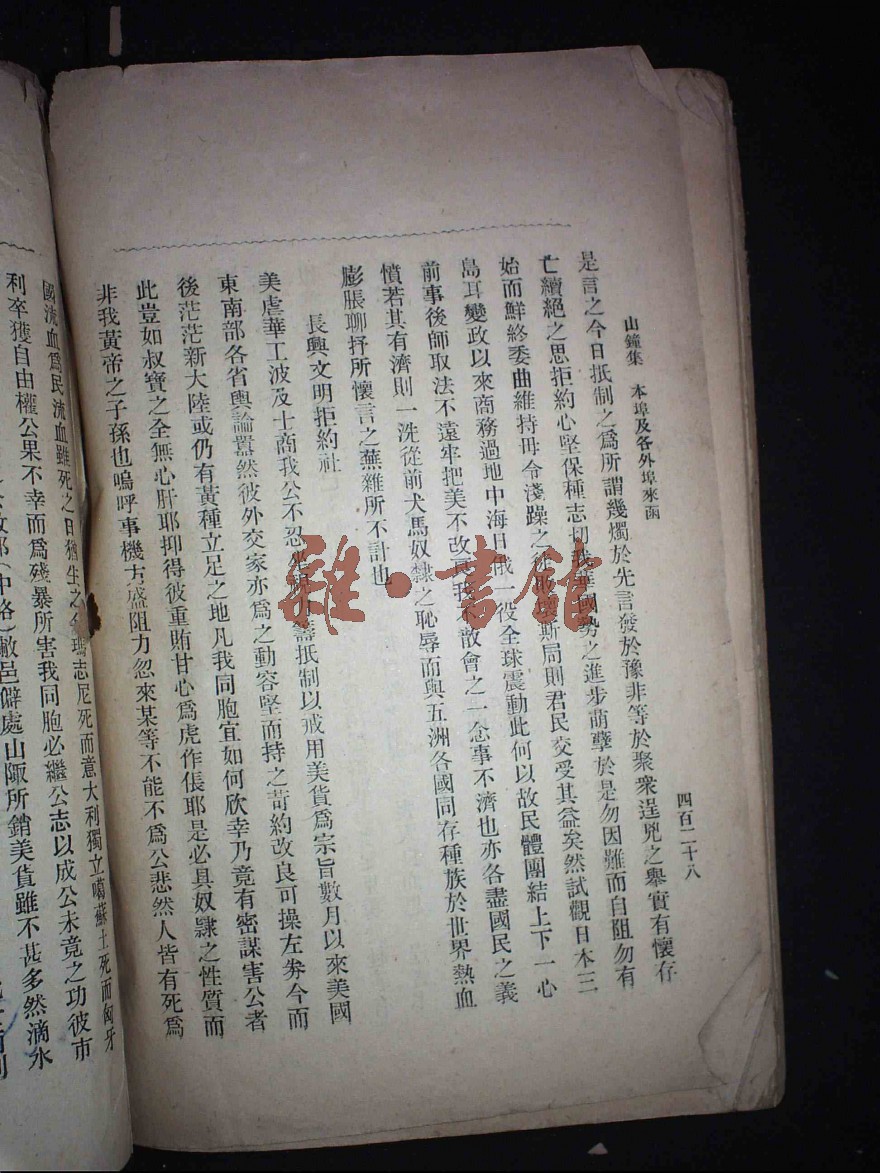 山鐘集　本埠及各外埠來函
四百二十八
是言之今日抵制之爲所謂幾燭於先言發於豫非等於聚衆逞兇之舉實有懷存
亡續絕之思拒約心堅保種志切我華國勢之進步萌孽於是勿因難而自阻勿有
始而鮮終委曲維持毋令淺躁之徒敗壞斯局則君民交受其益矣然試觀日本三
島耳變政以來商務過地中海日俄一役全球震動此何以故民體團結上下一心
前事後師取法不遠牢把美不改良我不散會之一念事不濟也亦各盡國民之義
憤若其有濟則一洗從前犬馬奴隸之恥辱而與五洲各國同存種族於世界熱血
膨脹聊抒所懷言之蕪雜所不計也
長興文明拒約社
美虐華工波及士商我公不忍坐視力籌抵制以戒用美貨爲宗旨數月以來美國
東南部各省輿論囂然彼外交家亦爲之動容堅而持之苛約改良可操左劵今而
後茫茫新大陸或仍有黃種立足之地凡我同胞宜如何欣幸乃竟有密謀害公者
此豈如叔寶之全無心肝耶抑得彼重賄甘心爲虎作倀耶是必具奴隸之性質而
非我黃帝之子孫也嗚呼事機方盛阻力忽來某等不能不爲公悲然人皆有死爲
國流血爲民流血雖死之日猶生之年瑪志尼死而意大利獨立噶蘇士死而匈牙
利卒獲自由權公果不幸而爲殘暴所害我同胞必繼公志以成公未竟之功彼市
中略 敝邑僻處山陬所銷美貨雖不甚多然滴水
雜·書館